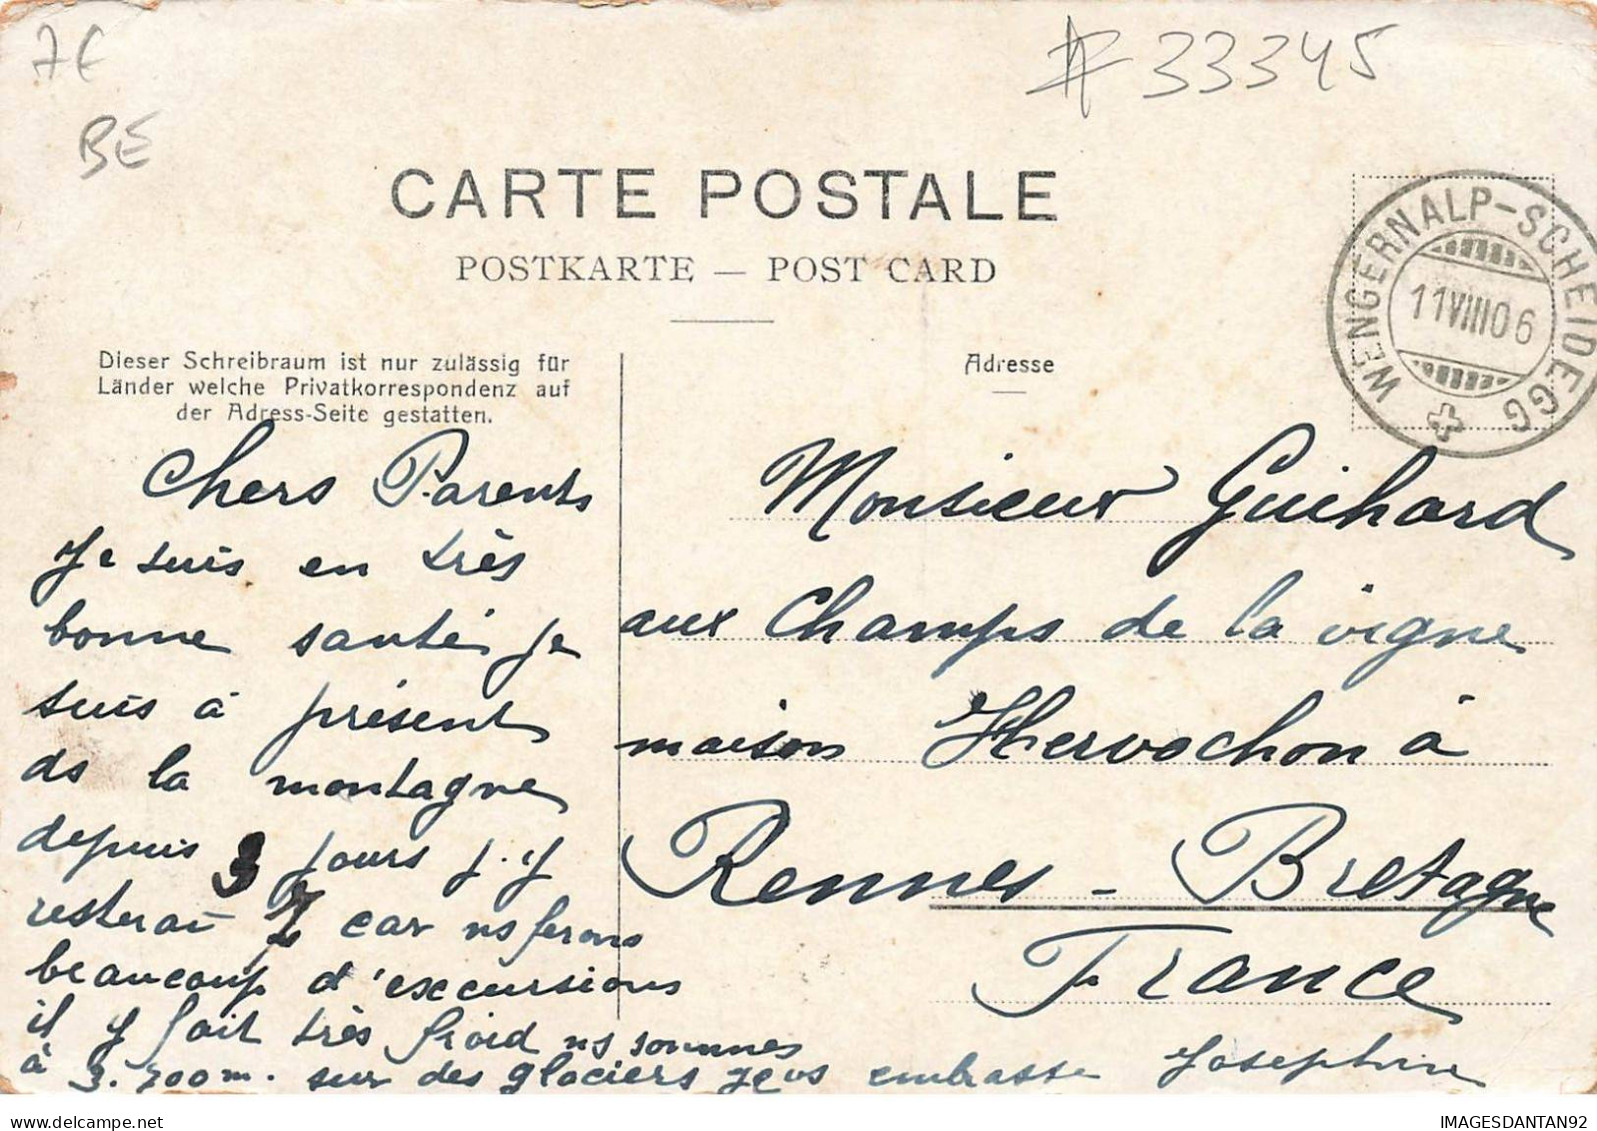 7€
BE
# 33345
CARTE POSTALE
POSTKARTE — POST CARD
WENGERNALP-SCHEIDEGG
11 VIII 06
Dieser Schreibraum ist nur zulässig für
Länder welche Privatkorrespondenz auf
der Adress-Seite gestatten.
Adresse
Chers Parents
Je suis en très
bonne santé je
suis à présent
ds la montagne
depuis 3 jours j'y
resterai 7 car ns ferons
beaucoup d'excursions
il y fait très froid ns sommes
à 3.700m. sur des glaciers Je vs embrasse Josephine
Monsieur Guihard
aux Champs de la vigne
maison Hervochon à
Rennes - Bretagne
France
IMAGESDANTAN92